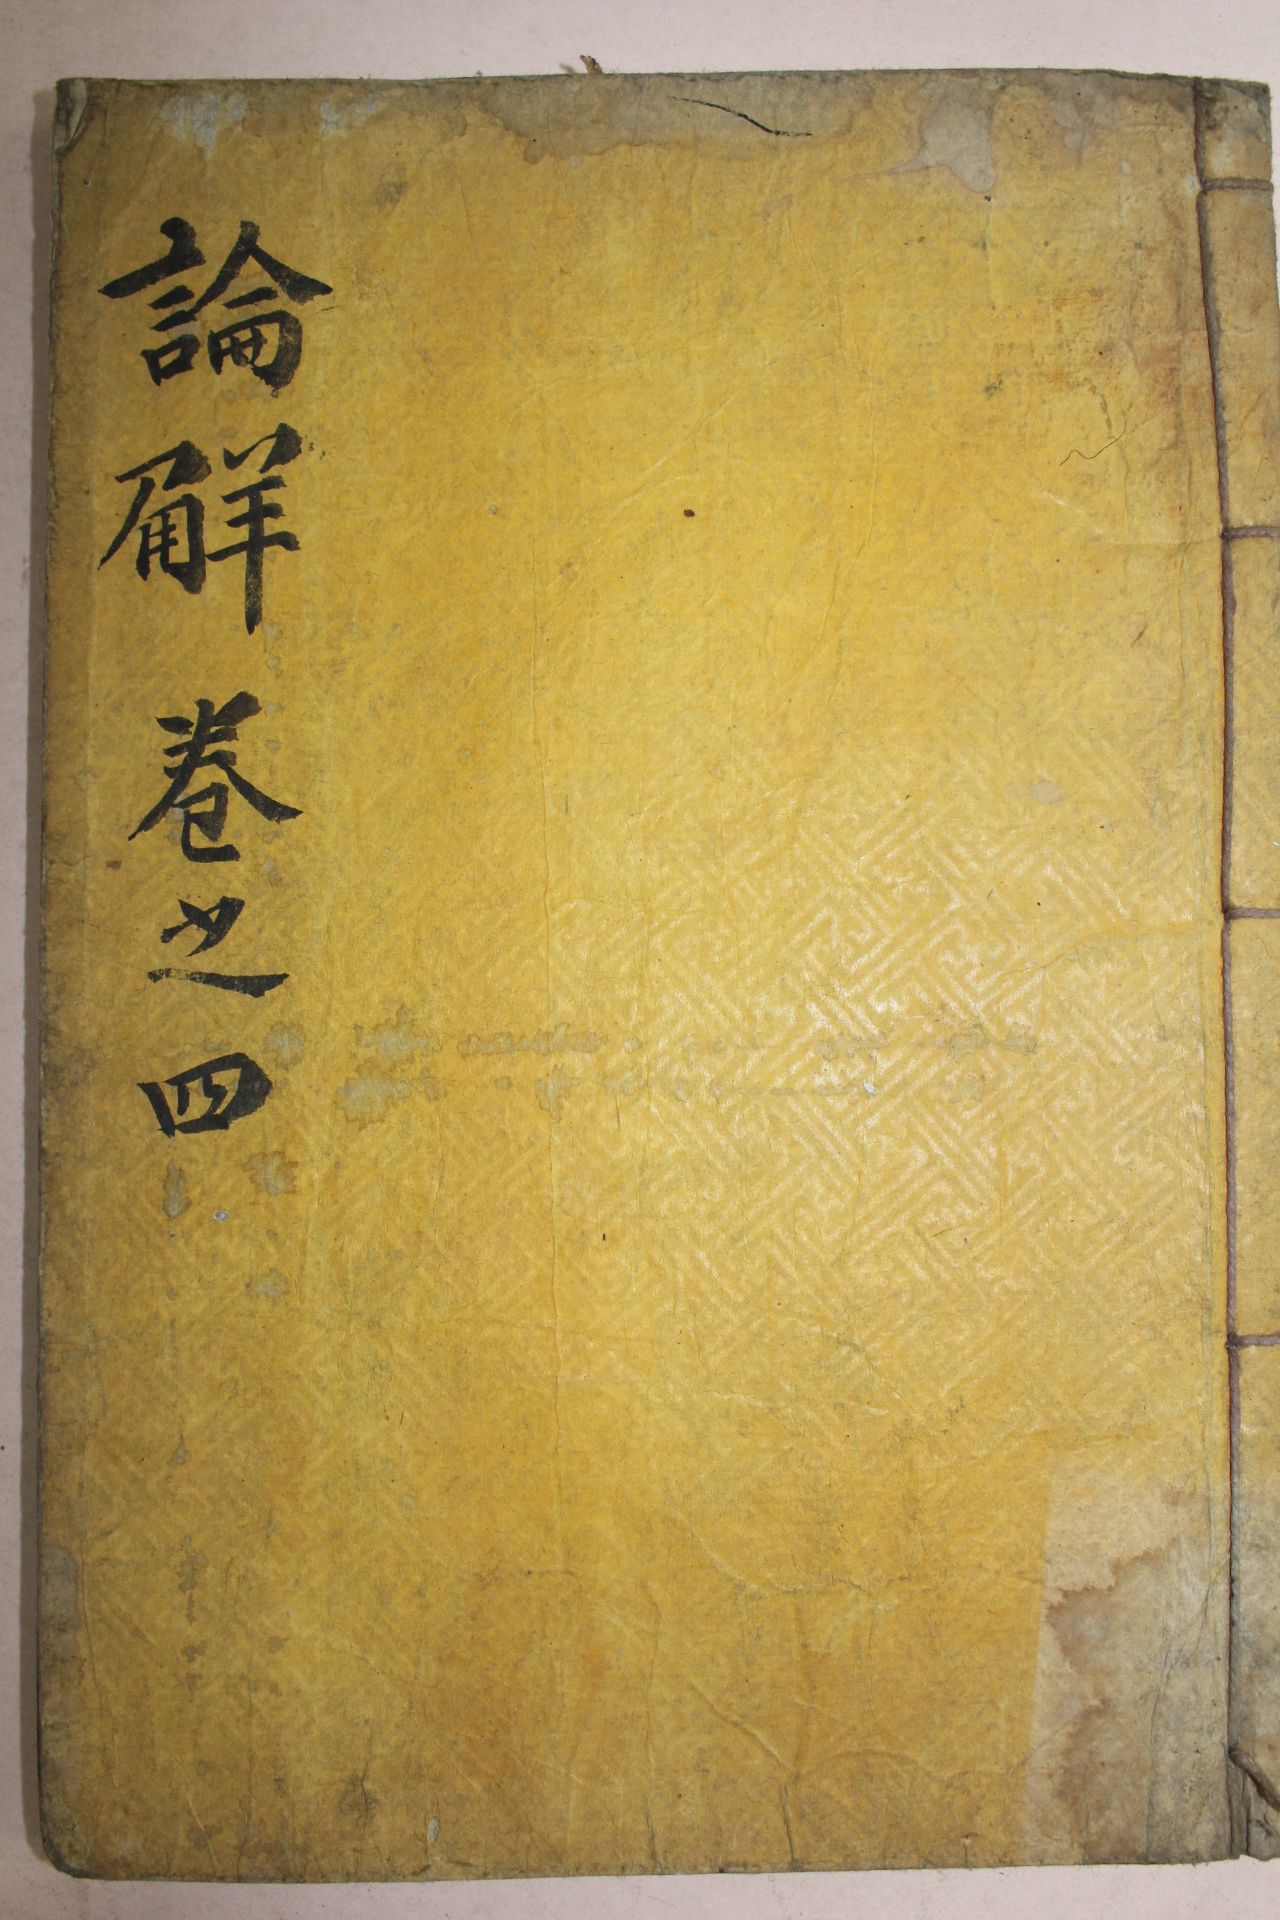 論觧卷之四